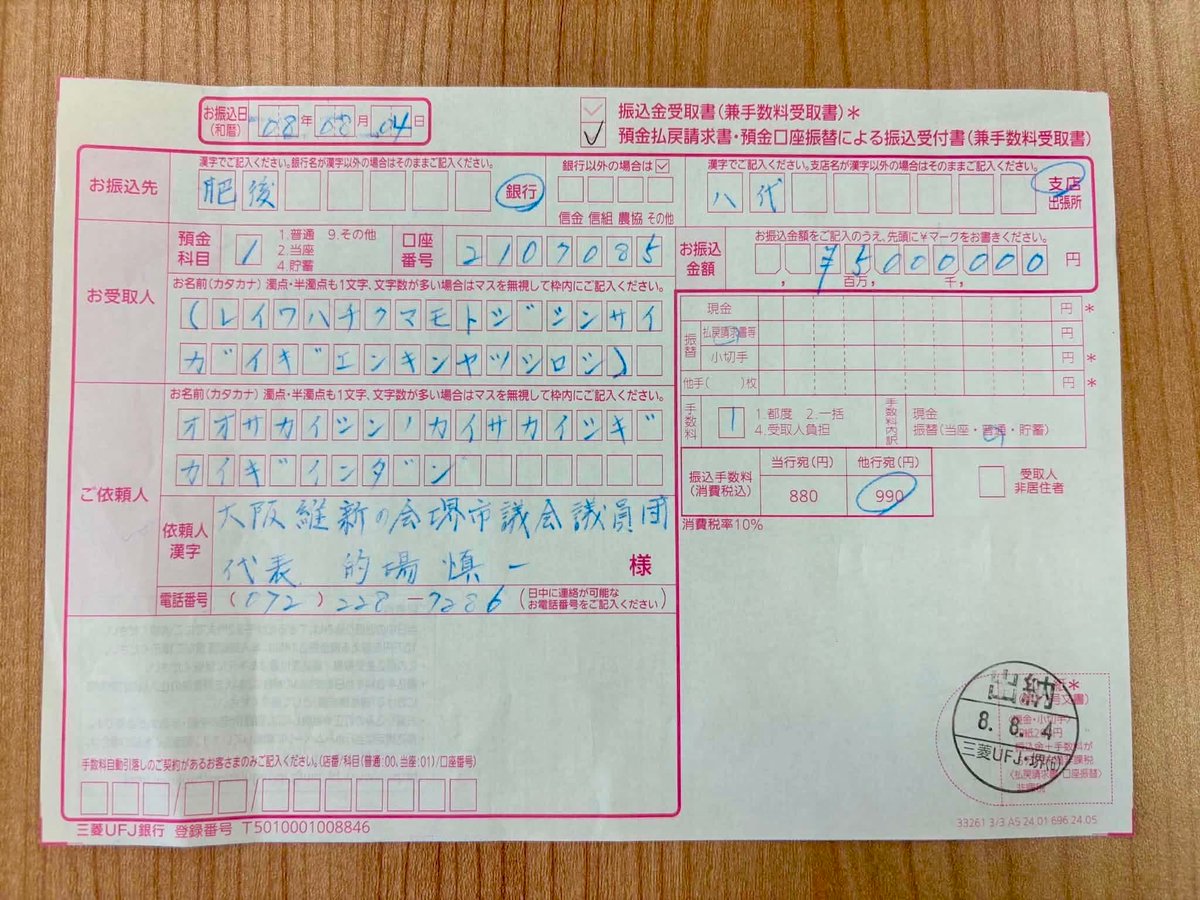 お振込日
(和暦)
08年08月04日
振込金受取書(兼手数料受取書)*
預金払戻請求書・預金口座振替による振込受付書(兼手数料受取書)
お振込先
漢字でご記入ください。銀行名が漢字以外の場合はそのままご記入ください。
肥後
銀行
銀行以外の場合は
信金 信組 農協 その他
漢字でご記入ください。支店名が漢字以外の場合はそのままご記入ください。
八代
支店
出張所
預金
科目
1
1.普通 9.その他
2.当座
4.貯蓄
口座
番号
2107085
お振込
金額
お振込金額をご記入のうえ、先頭に¥マークをお書きください。
¥5000000
円
百万,
千,
お受取人
お名前(カタカナ) 濁点・半濁点も1文字、文字数が多い場合はマスを無視して枠内にご記入ください。
(レイワハチクマモトジシンサイ
ガイギエンキンヤツシロシ)
振替
現金
円*
払戻請求書等
円
小切手
円*
他手( )枚
円*
ご依頼人
お名前(カタカナ) 濁点・半濁点も1文字、文字数が多い場合はマスを無視して枠内にご記入ください。
オオサカイシンノカイサカイシギ
カイギインダン
手数料
1
1.都度 2.一括
4.受取人負担
手数料内訳
現金
振替(当座・普通・貯蓄)
振込手数料
(消費税込)
当行宛(円)
他行宛(円)
880
990
受取人
非居住者
消費税率10%
依頼人
漢字
大阪維新の会堺市議会議員団
代表 的場慎一
様
電話番号
(072)228-7286
(日中に連絡が可能な
お電話番号をご記入ください)
出納
8.8.4
三菱UFJ・堺
手数料自動引落しのご契約があるお客さまのみご記入ください。(店番/科目(普通:00、当座:01)/口座番号)
三菱UFJ銀行 登録番号 T5010001008846
33261 3/3 A5 24.01 696 24.05